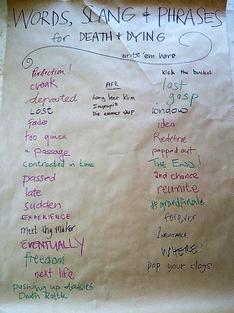 WORDS, SLANG & PHRASES
for DEATH & DYING
write 'em here
Perfection!
croak
departed
Lost
Fade
too quick
a passage
contracted in time
passed
late
sudden
EXPERIENCE
meet thy maker
EVENTUALLY
freedom
next life
pushing up daisies
Death Rattle
AFR
long hear him
kick the bucket
last
gasp
window
idea
Redefine
popped out
The End!
2nd chance
reunite
#grandfinale
forever
WHERE?
pop your clogs